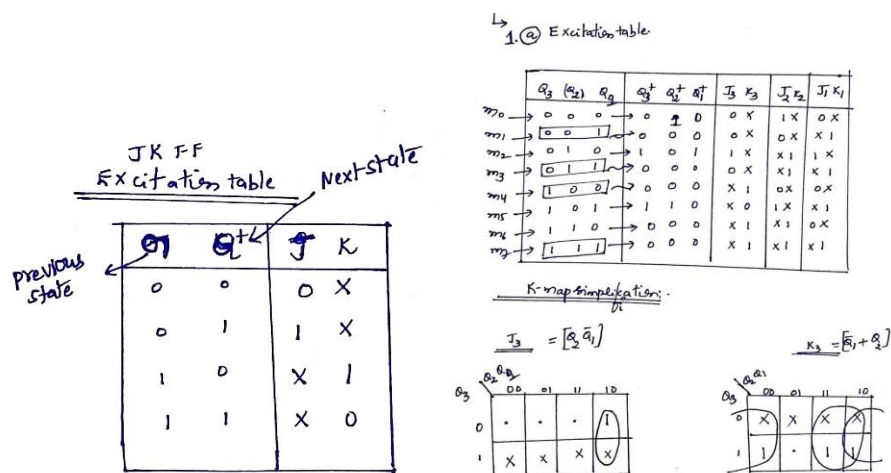 JK FF
Excitation table
Next state
previous
state
Q Q⁺ J K
0 0 0 X
0 1 1 X
1 0 X 1
1 1 X 0
↳
1. ⓐ Excitation table
Q3 (Q2) Q3⁺ Q2⁺ Q1⁺ J3 K3 J2 K2 J1 K1
m0 → 0 0 0 → 0 1 0 0 X 1 X 0 X
m1 → 0 0 1 → 0 0 0 0 X 0 X X 1
m2 → 0 1 0 → 1 0 1 1 X X 1 1 X
m3 → 0 1 1 → 0 0 0 0 X X 1 X 1
m4 → 1 0 0 → 0 0 0 X 1 0 X 0 X
m5 → 1 0 1 → 1 1 0 X 0 1 X X 1
m6 → 1 1 0 → 0 0 0 X 1 X 1 0 X
m7 → 1 1 1 → 0 0 0 X 1 X 1 X 1
K-map simplification:
J3 = [Q2 Q̄1]
Q3
00 01 11 10
0 . . . 1
1 X X X X
K3 = [Q̄1 + Q2]
Q3 Q2Q1
00 01 11 10
0 X X X X
1 1 . 1 1